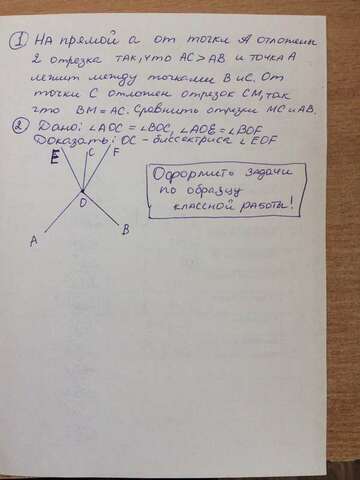 ① На прямой а от точки А отложены
2 отрезка так, что АС > АВ и точка А
лежит между точками В и С. От
точки С отложен отрезок СМ, так
что ВМ = АС. Сравнить отрезки МС и АВ.
② Дано: ∠АОС = ∠ВОС, ∠АОЕ = ∠ВОF
Доказать: ОС - биссектриса ∠ЕОF
E C F
O
A B
Оформить задачи
по образцу
классной работы!